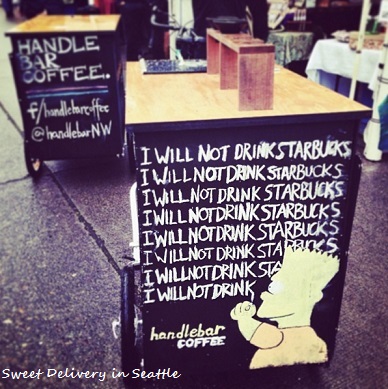 HANDLE
BAR
COFFEE.
f/handlebarcoffee
@handlebarNW
I WILL NOT DRINK STARBUCKS
I WILL NOT DRINK STARBUCKS
I WILL NOT DRINK STARBUCKS
I WILL NOT DRINK STARBUCKS
I WILL NOT DRINK STARBUCKS
I WILL NOT DRINK STARBUCKS
I WILL NOT DRINK STA
I WILL NOT DRINK
handlebar
COFFEE
Sweet Delivery in Seattle